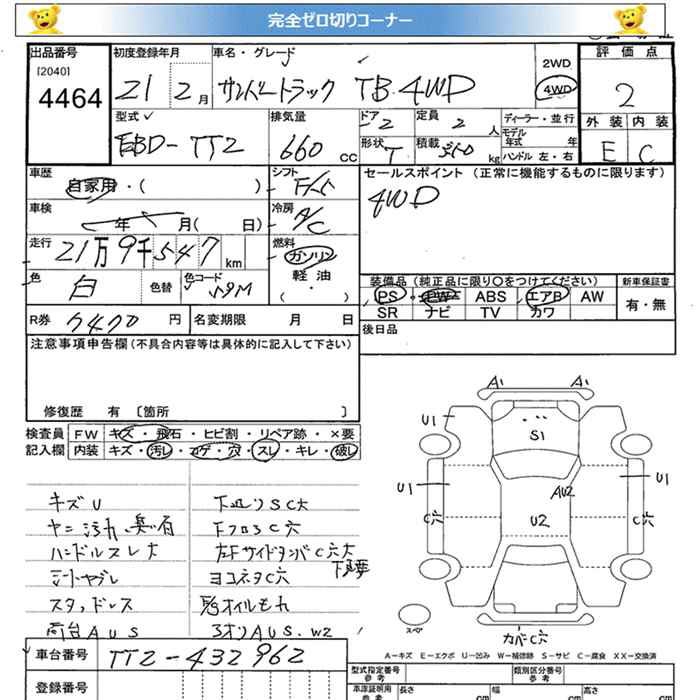 完全ゼロ切りコーナー
出品番号 初度登録年月 車名・グレード 評価点
[2040]
4464
21 2月 サンバートラック TB 4WD
2WD
4WD
2
型式 排気量 ドア 2 定員 2人 ディーラー・並行
EBD-TT2 660cc 形状 T 積載 350kg
モデル年式 年
ハンドル 左・右
外装 内装
E C
車歴 自家用・( ) シフト
セールスポイント(正常に機能するものに限ります)
4WD
車検 年 月( 日) 冷房 A/C
走行 21万9千547km 燃料 ガソリン
軽油
・( )
色 白 色替 色コード 51M
装備品(純正品に限り○をつけてください) 新車保証書
PS PW ABS エアB AW 有・無
SR ナビ TV カワ
R券 7470円 名変期限 月 日
後日品
注意事項申告欄(不具合内容等は具体的に記入して下さい)
修復歴 有 〔箇所 〕
検査員 FW キズ・飛石・ヒビ割・リペア跡・×要
記入欄 内装 キズ・汚レ・コゲ・穴・スレ・キレ・破レ
A1 A1
U1
S1
U1 U1
AU2
U2
C穴 C穴
スペア
カバーC穴
キズU 下廻りSC大
ヤニ汚れ、臭い有 下フロSC穴
ハンドルスレ大 左Fサイドタンバ C穴大
シートヤブレ ヨコネタC穴
スタッドレス オイルもれ
荷台AUS 3オリAUS.W2
A-キズ E-エクボ U-凹み W-補修跡 S-サビ C-腐食 XX-交換済
車台番号 TT2-432962
型式指定番号 参考 類別区分番号 参考
登録番号
車庫証明用 参考 長さ cm 幅 cm 高さ